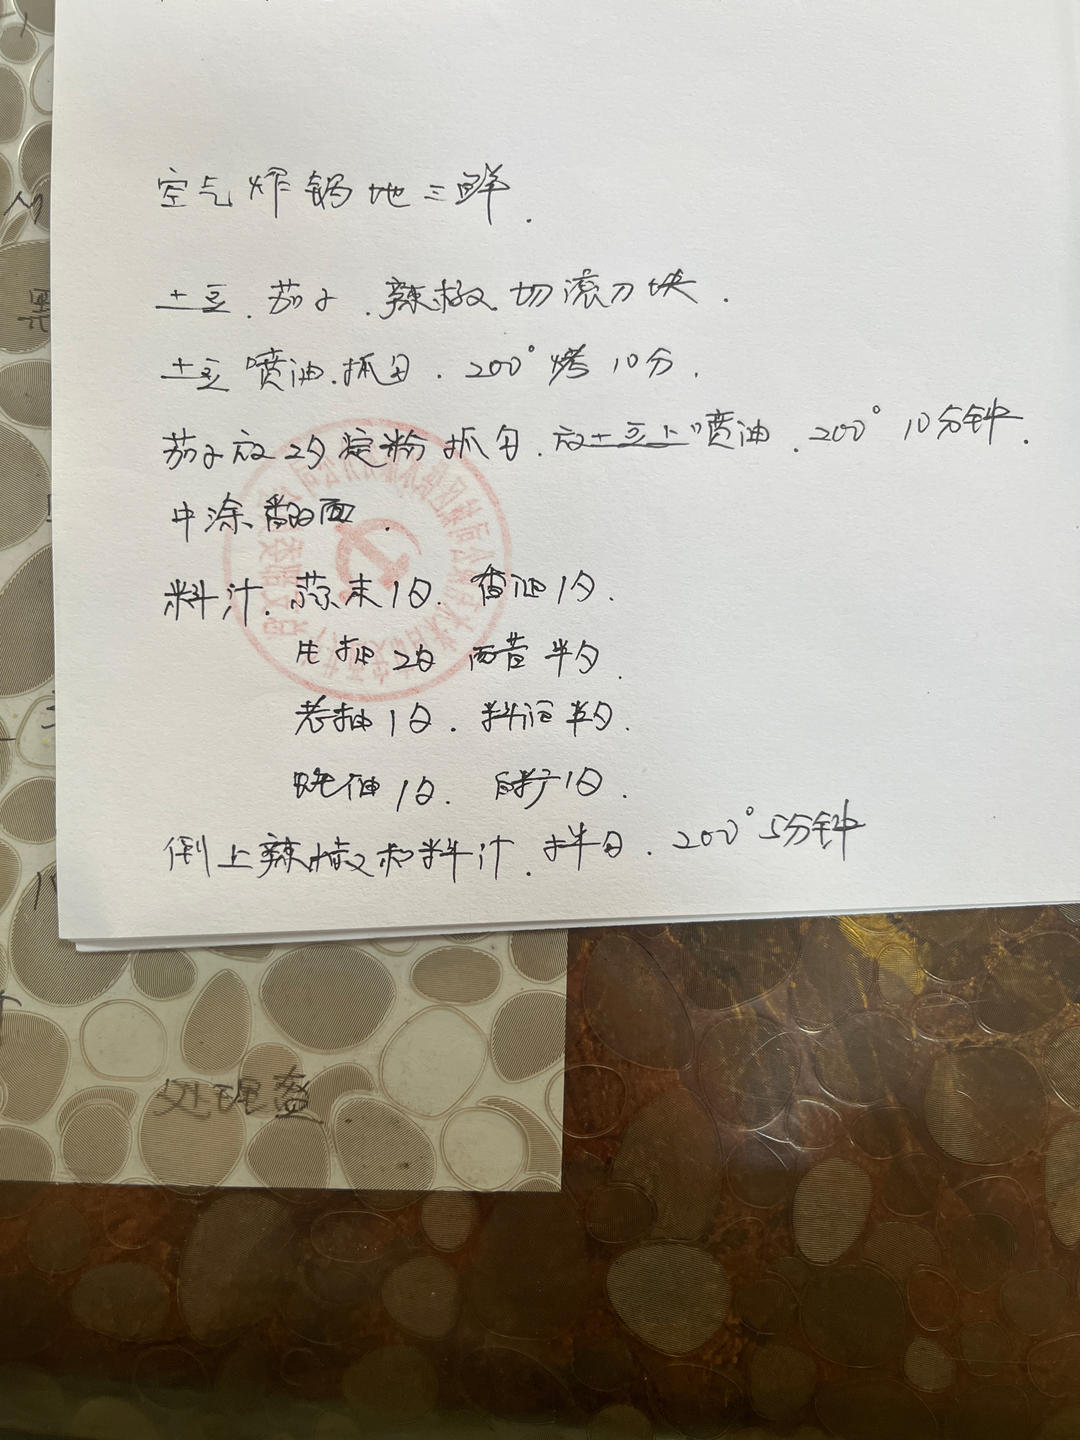 空气炸锅地三鲜.
土豆.茄子.辣椒切滚刀块.
土豆喷油.抓匀.200°烤10分.
茄子放2勺淀粉抓匀.放土豆上喷油.200°10分钟.
中涂翻面.
料汁.蒜末1勺.香油1勺.
生抽2勺 醋半勺.
老抽1勺.料酒半勺.
蚝油1勺.白糖1勺.
倒上辣椒和料汁.拌匀.200°5分钟
处理盔